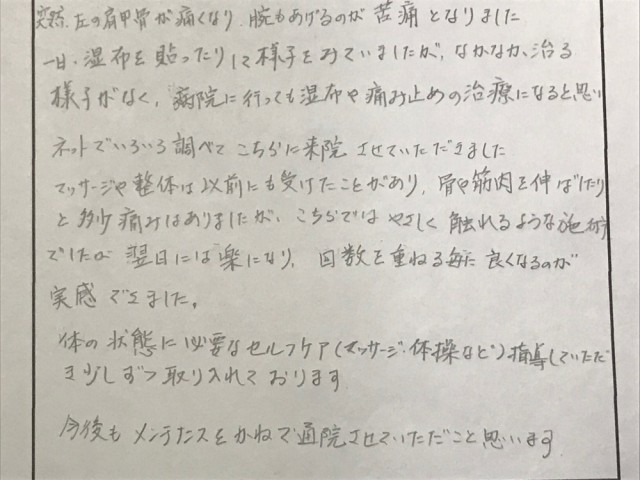 突然、左の肩甲骨が痛くなり、腕もあげるのが苦痛となりました
一日、湿布を貼ったりして様子をみていましたが、なかなか治る
様子がなく、病院に行っても湿布や痛み止めの治療になると思い
ネットでいろいろ調べてこちらに来院させていただきました
マッサージや整体は以前にも受けたことがあり、骨や筋肉を伸ばしたり
と多少痛みはありましたが、こちらではやさしく触れるような施術
でしたが翌日には楽になり、回数を重ねる毎に良くなるのが
実感できました。
体の状態に必要なセルフケア(マッサージ・体操など)指導していただ
き少しずつ取り入れております
今後もメンテナンスをかねて通院させていただこと思います